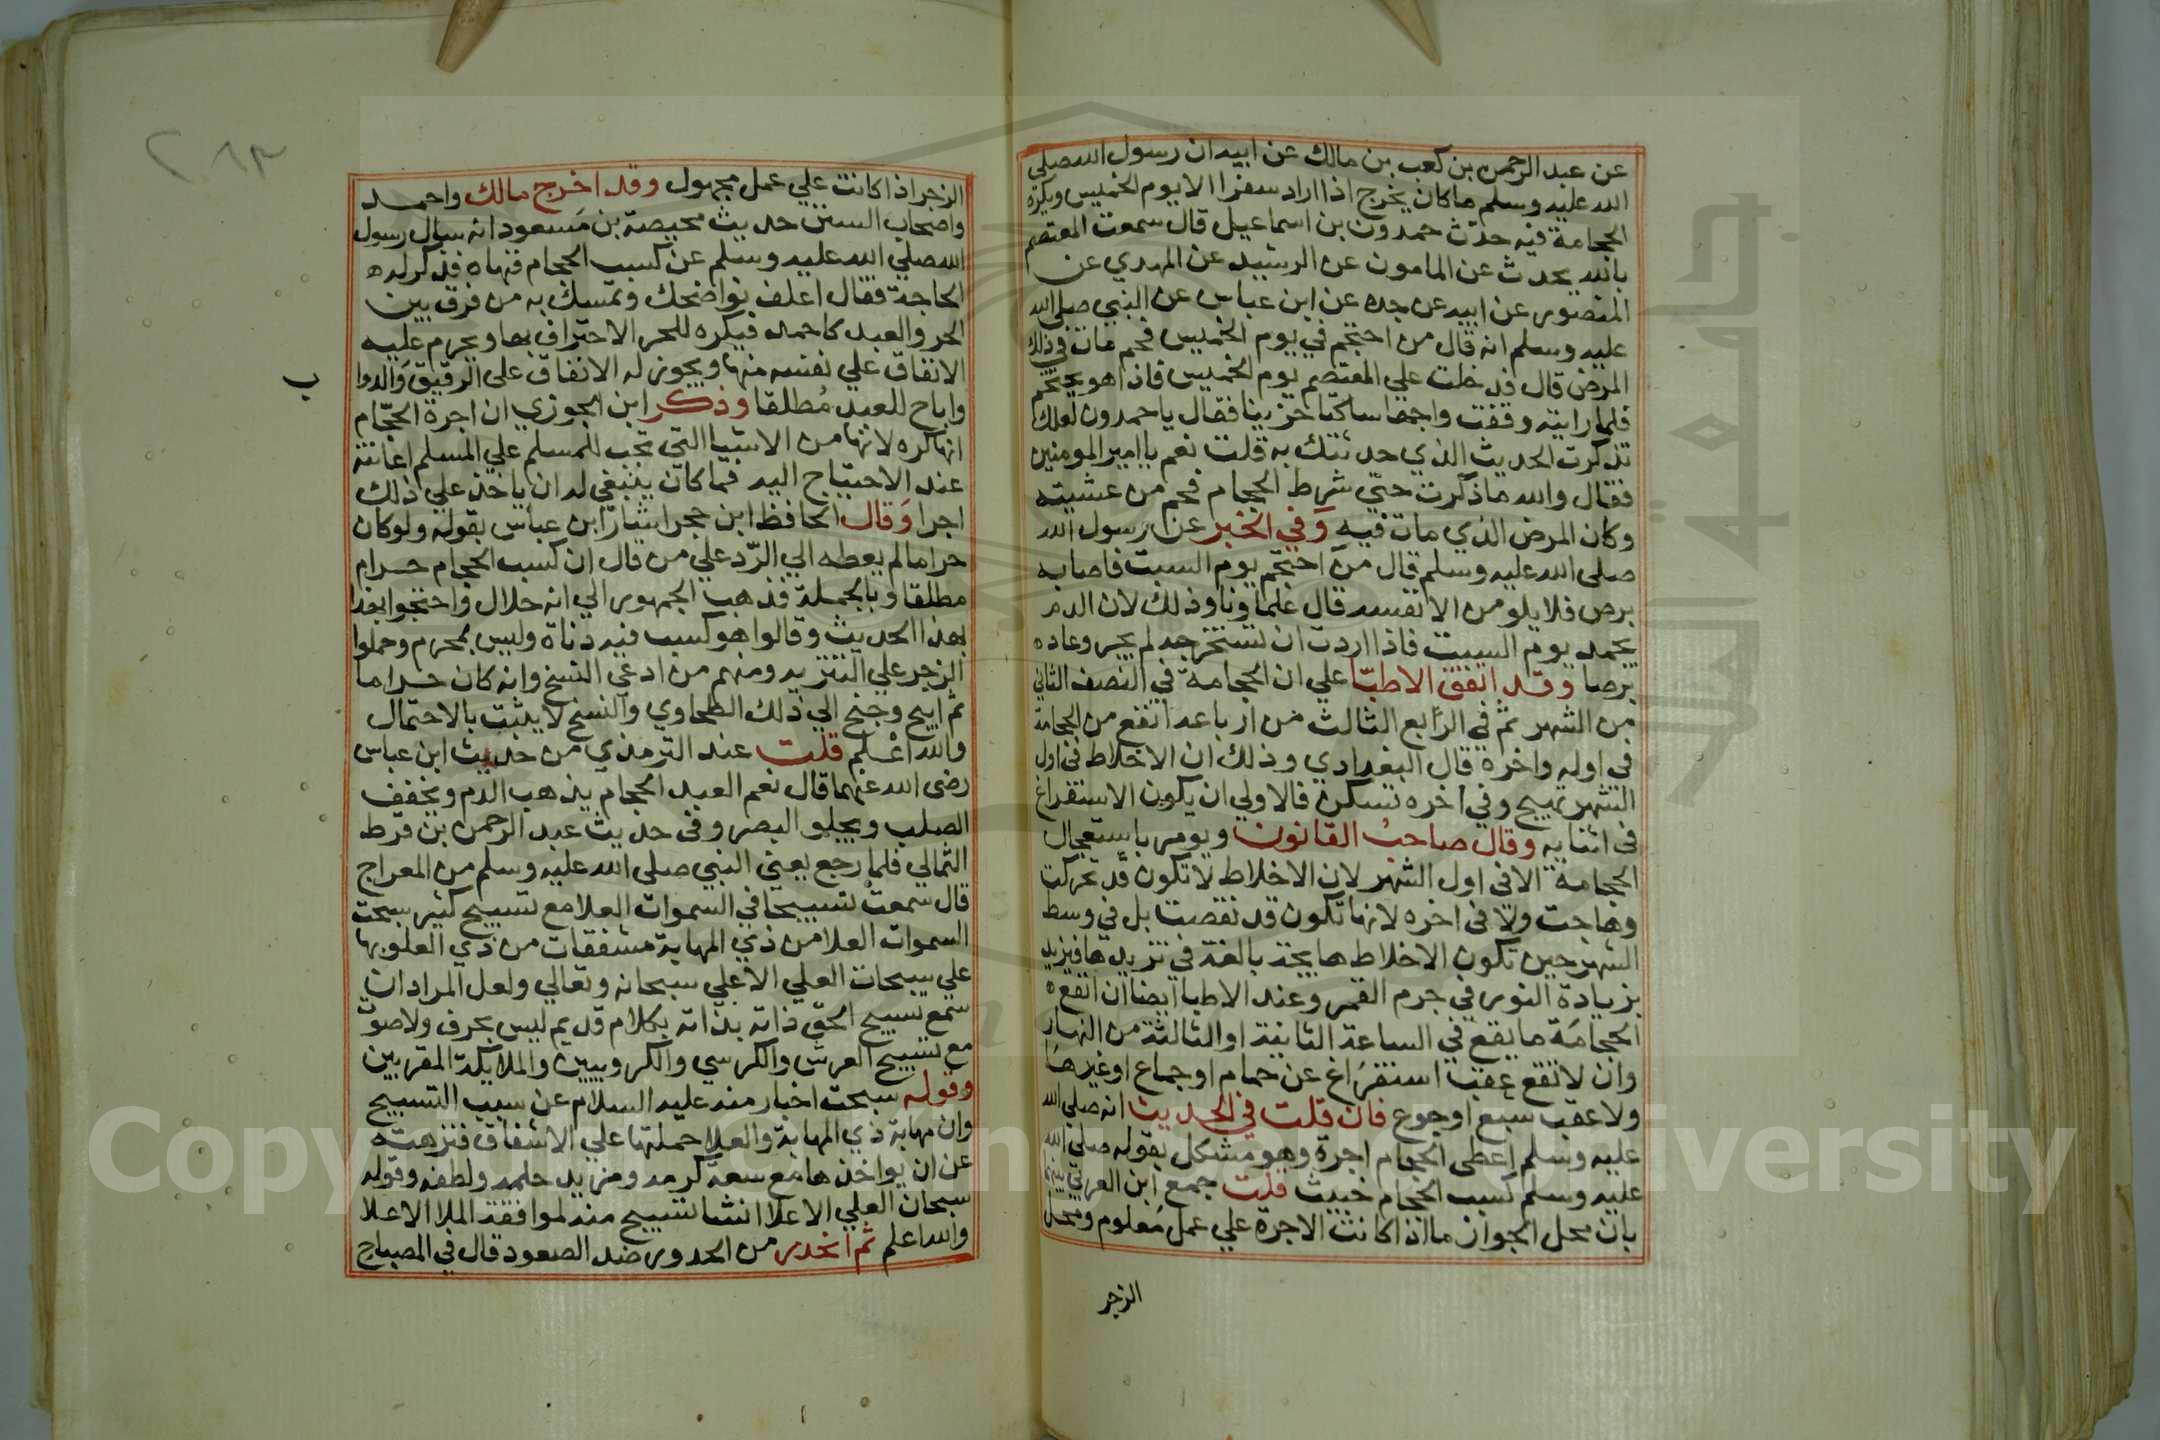 عن عبد الرحمن بن كعب بن مالك عن ابيه ان رسول الله صلى
الله عليه وسلم ما كان يخرج اذا اراد سفرا الا يوم الخميس ويكره
الحجامة فيه حدث حمدون بن اسماعيل قال سمعت المعتصم
بالله يحدث عن المامون عن الرشيد عن المهدي عن
المنصور عن ابيه عن جده عن ابن عباس عن النبي صلى الله
عليه وسلم انه قال من احتجم في يوم الخميس فحم مات في ذلك
المرض قال فدخلت علي المعتصم يوم الخميس فاذا هو يحتجم
فلما رايته وقفت واجما ساكتا حزينا فقال يا حمدون لعلك
تذكرت الحديث الذي حدثتك به قلت نعم يا امير المومنين
فقال والله ما ذكرت حتي شرط الحجام فحم من عشيته
وكان المرض الذي مات فيه وفي الخبر عن رسول الله
صلى الله عليه وسلم قال من احتجم يوم السبت فاصابه
برص فلا يلومن الا نفسه قال علماونا وذلك لان الدم
يجمد يوم السبت فاذا اردت ان تستخرجه لم يجر وعاده
برصا وقد اتفق الاطبا علي ان الحجامة في النصف الثاني
من الشهر ثم في الرابع الثالث من ارباعه انفع من الحجامة
في اوله واخره قال البغدادي وذلك ان الاخلاط في اول
الشهر تهيج وفي اخره تسكن فالاولي ان يكون الاستفراغ
في اثنايه وقال صاحب القانون ويومر باستعمال
الحجامة الا في اول الشهر لان الاخلاط لا تكون قد تحركت
وهاجت ولا في اخره لانها تكون قد نقصت بل في وسط
الشهر حين تكون الاخلاط هايجة بالغة في تزيدها فيزيد
بزيادة النور في جرم القمر وعند الاطبا ايضا ان انفع
الحجامة ما يقع في الساعة الثانية او الثالثة من النهار
وان لا تقع عقب استفراغ عن حمام او جماع او غيرها
ولا عقب شبع او جوع فان قلت في الحديث انه صلى الله
عليه وسلم اعطى الحجام اجرة وهو مشكل بقوله صلى الله
عليه وسلم كسب الحجام خبيث قلت جمع ابن العربي بينهما
بان محل الجواز ما اذا كانت الاجرة علي عمل معلوم ومحل
الزجر
الزجر اذا كانت علي عمل مجهول وقد اخرج مالك واحمد
واصحاب السنن حديث محيصة بن مسعود انه سال رسول
الله صلي الله عليه وسلم عن كسب الحجام فنهاه فذكر له
الحاجة فقال اعلف نواضحك وتمسك به من فرق بين
الحر والعبد كاحمد فيكره للحر الاحتراف بها ويحرم عليه
الانفاق علي نفسه منها ويجوز له الانفاق على الرقيق والدوا
ب
واباح للعبد مطلقا وذكر ابن الجوزي ان اجرة الحجام
انما كره لانها من الاشيا التي تجب للمسلم علي المسلم اعانته
عند الاحتياج اليه فما كان ينبغي له ان ياخذ علي ذلك
اجرا وقال الحافظ ابن حجر اشار ابن عباس بقوله ولو كان
حراما لم يعطه الي الرد علي من قال ان كسب الحجام حرام
مطلقا وبالجملة فذهب الجمهور الي انه حلال واحتجوا بهذا
بهذا الحديث وقالوا هو كسب فيه دناة وليس بمحرم وحملوا
الزجر علي التنزيه ومنهم من ادعي النسخ وانه كان حراما
ثم ابيح وجنح الي ذلك الطحاوي والنسخ لا يثبت بالاحتمال
والله اعلم قلت عند الترمذي من حديث ابن عباس
رضى الله عنهما قال نعم العبد الحجام يذهب الدم ويخفف
الصلب ويجلو البصر وفي حديث عبد الرحمن بن قرط
الثمالي فلما رجع يعني النبي صلى الله عليه وسلم من المعراج
قال سمعت تسبيحا في السموات العلا مع تسبيح كثير سبحت
السموات العلا من ذي المهابة مشفقات من ذي العلو بها
علي سبحان العلي الاعلي سبحانه وتعالي ولعل المراد ان
سمع تسبيح الحق ذاته بذاته بكلام قديم ليس بحرف ولا صوت
مع تسبيح العرش والكرسي والكروبيين والملايكة المقربين
وقوله سبحت اخبار منه عليه السلام عن سبب التسبيح
وان مهابة ذي المهابة والعلا حملتها علي الاشفاق فنزهته
عن ان يواخذها مع سعة كرمه ومزيد حلمه ولطفه وقوله
سبحان العلي الاعلا انشا تسبيح منه لموافقة الملا الاعلا
والله اعلم ثم انحدر من الحدور ضد الصعود قال في المصباح
٢٨٣
Copyright © King Saud University
جامعة الملك سعود